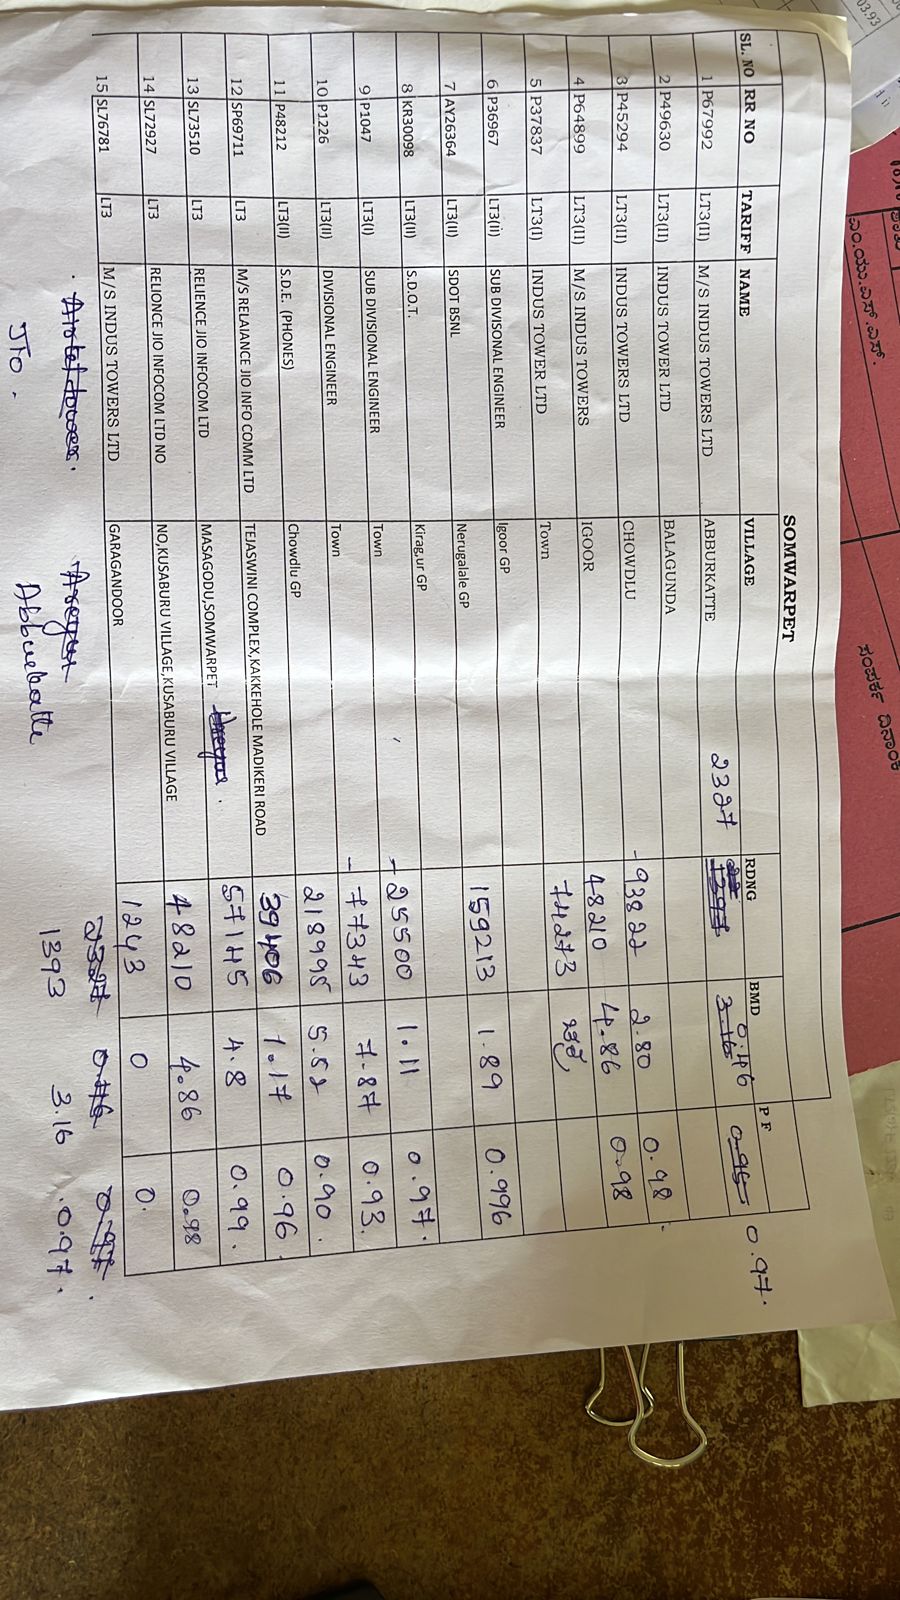 SOMWARPET
SL. NO RR NO TARIFF NAME VILLAGE RDNG BMD P F
1 P67992 LT3(II) M/S INDUS TOWERS LTD ABBURKATTE 2327 1393 3.16 0.146 0.95 0.97.
2 P49630 LT3(II) INDUS TOWER LTD BALAGUNDA
3 P45294 LT3(II) INDUS TOWERS LTD CHOWDLU - 93822 2.80 0.98
4 P64899 LT3(II) M/S INDUS TOWERS IGOOR 48210 4.86 0.98
5 P37837 LT3(I) INDUS TOWER LTD Town 74273
6 P36967 LT3(ii) SUB DIVISONAL ENGINEER Igoor GP 159213 1.89 0.996
7 AY26364 LT3(II) SDOT BSNL Nerugalale GP
8 KR30098 LT3(II) S.D.O.T. Kirag,ur GP - 25500 1.11 0.97.
9 P1047 LT3(I) SUB DIVISIONAL ENGINEER Town - 77343 7.87 0.93.
10 P1226 LT3(II) DIVISIONAL ENGINEER Town 218995 5.52 0.90.
11 P48212 LT3(II) S.D.E. (PHONES) Chowdlu GP 39406 1.17 0.96.
12 SP69711 LT3 M/S RELAIANCE JIO INFO COMM LTD TEJASWINI COMPLEX,KAKKEHOLE MADIKERI ROAD 57145 4.8 0.99.
13 SL73510 LT3 RELIENCE JIO INFOCOM LTD MASAGODU,SOMWARPET 48210 4.86 0.98
14 SL72927 LT3 RELIONCE JIO INFOCOM LTD NO NO,KUSABURU VILLAGE,KUSABURU VILLAGE 1243 0 0.
15 SL76781 LT3 M/S INDUS TOWERS LTD GARAGANDOOR
2327 0.46 0.97.
JIO. Abburkatte 1393 3.16 .0.97.
03.93
ಎಂ.ಯು.ಎಸ್.ಎಸ್.
ಸಂಪರ್ಕ ದಿನಾಂಕ